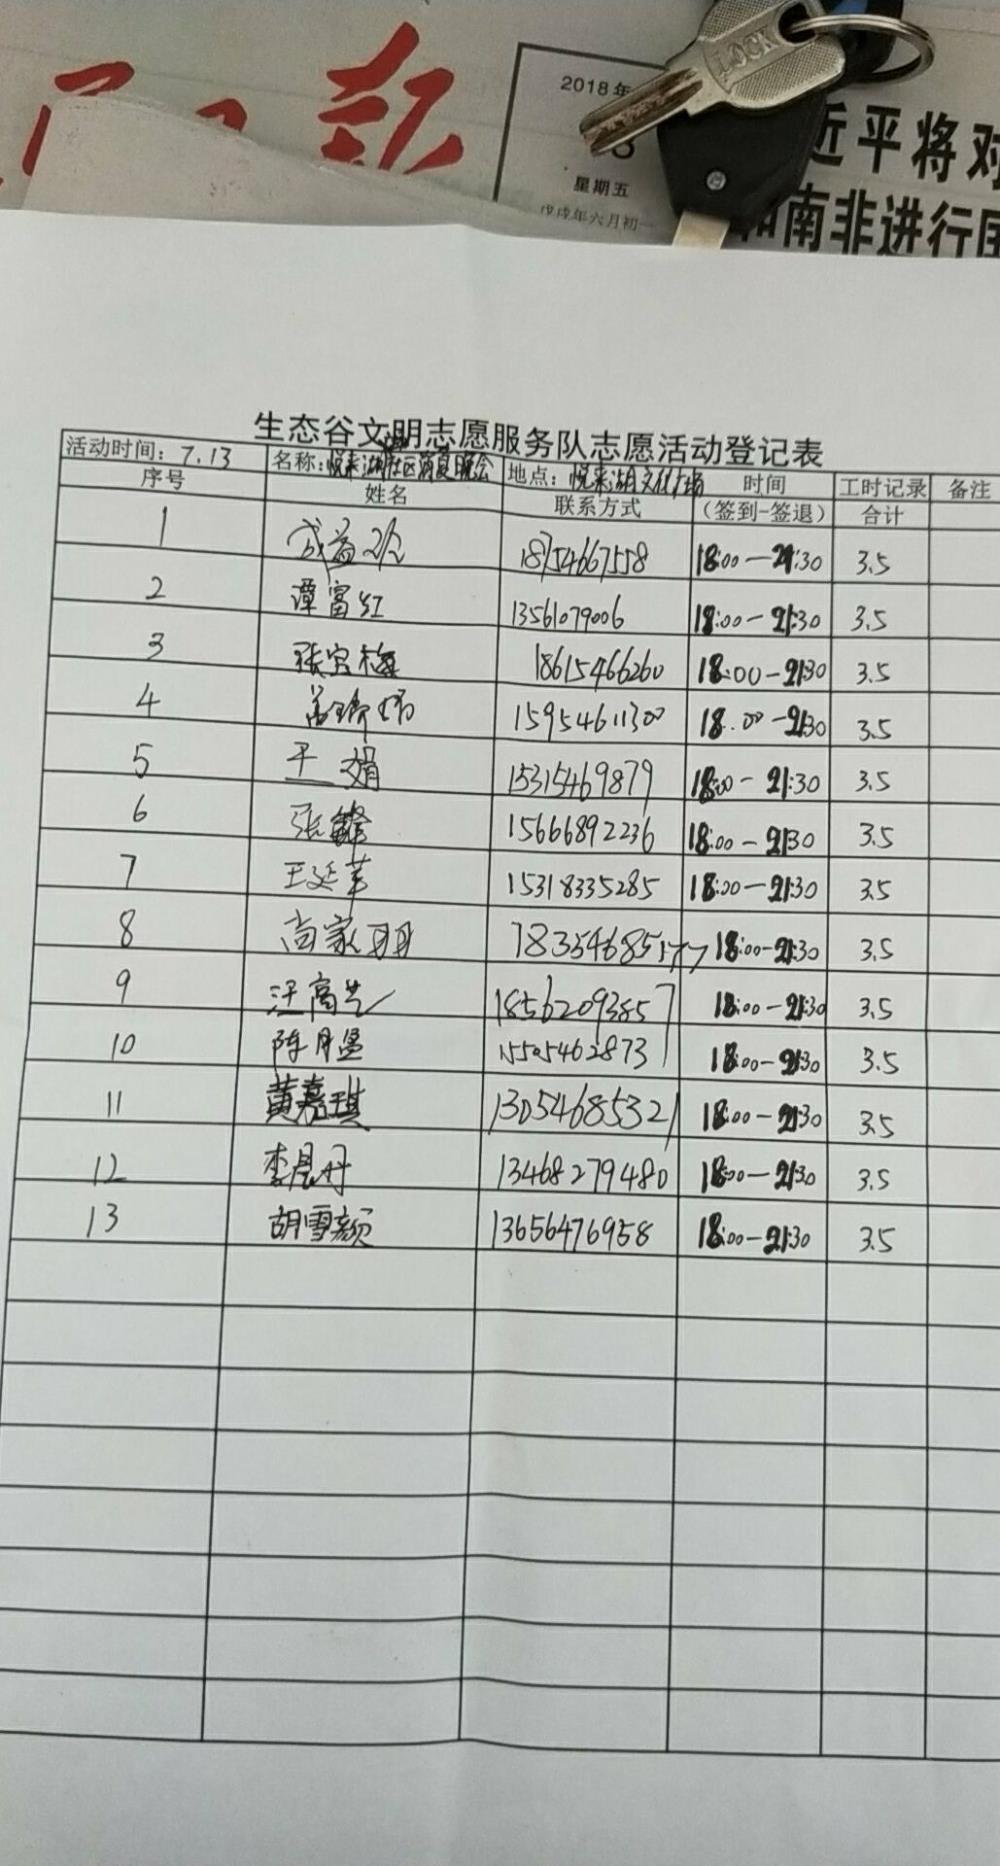 报
2018年
星期五
戊戌年六月初一
近平将对
和南非进行国
生态谷文明志愿服务队志愿活动登记表
活动时间：7.13 名称：悦来湖社区消夏晚会 地点：悦来湖文化广场 时间 工时记录 备注
序号 姓名 联系方式 （签到-签退） 合计
1 18754667558 18:00-21:30 3.5
2 谭富红 13561079006 18:00-21:30 3.5
3 张宝梅 18615466260 18:00-21:30 3.5
4 15954611300 18:00-21:30 3.5
5 王娟 15315469879 18:00-21:30 3.5
6 张鑫 15666892236 18:00-21:30 3.5
7 王延苹 15318335285 18:00-21:30 3.5
8 尚家朋 18:00-21:30 3.5
9 汪高兰 18562093857 18:00-21:30 3.5
10 陈月 15505462873 18:00-21:30 3.5
11 黄嘉琪 13054685321 18:00-21:30 3.5
12 李晨丹 13468279480 18:00-21:30 3.5
13 胡雪颜 13656476958 18:00-21:30 3.5